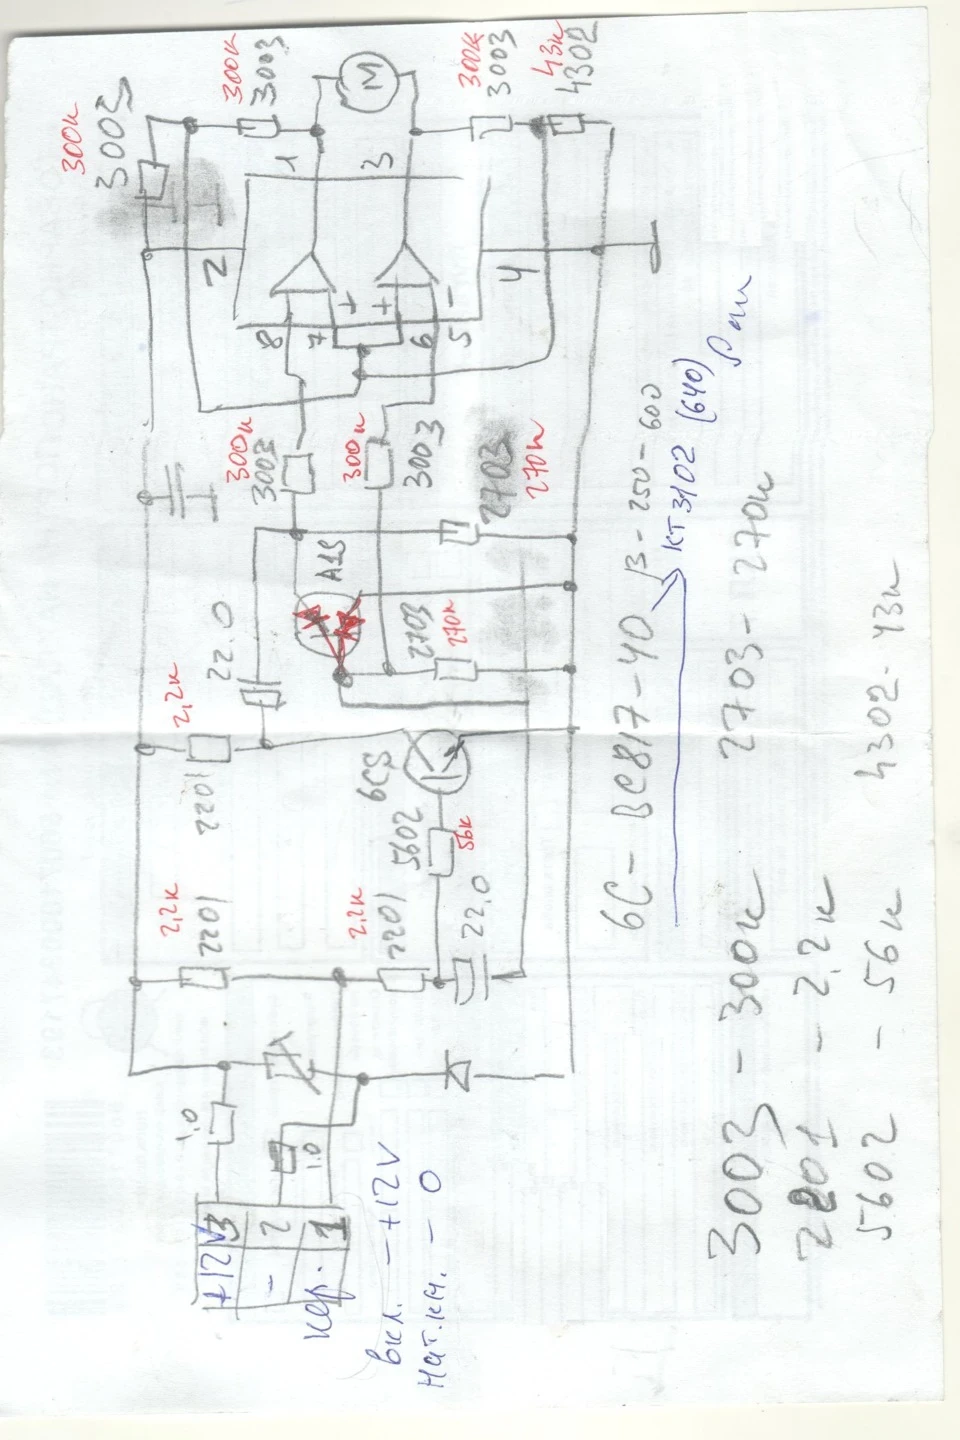 +12V 3
- 2
упр. 1
вкл. - +12V
Нат.кл. - 0
1.0
1.0
2,2к
2201
2,2к
2201
22.0
5602
56к
6CS
2,2к
2201
22.0
A1S
2703
270к
2703
270к
300к
3003
300к
3003
8
7
6
5
+
+
-
2
1
3
4
M
300к
3003
300к
3003
300к
3003
43к
4302
6C - BC817-40 β - 250 - 600
КТ3102 (640)
3003 - 300к 2703 - 270к
2201 - 2,2к
5602 - 56к 4302 - 43к